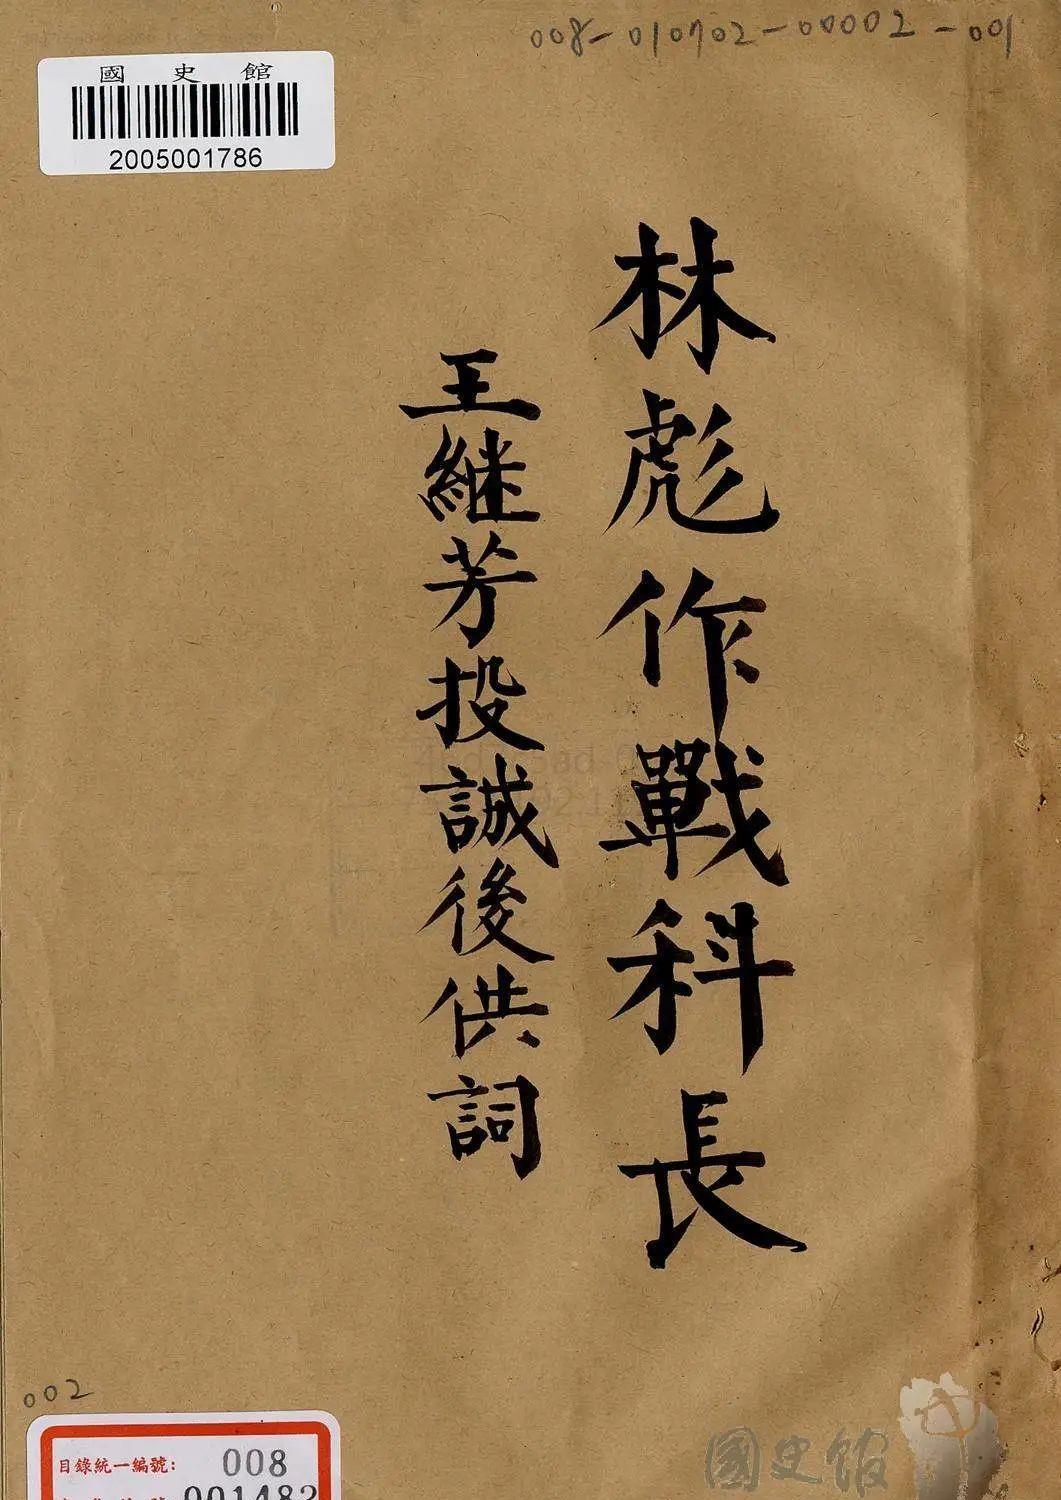 008-010702-00002-001
國史館
2005001786
林彪作戰科長
王継芳投誠後供詞
002
目錄統一編號：
008
001482
國史館